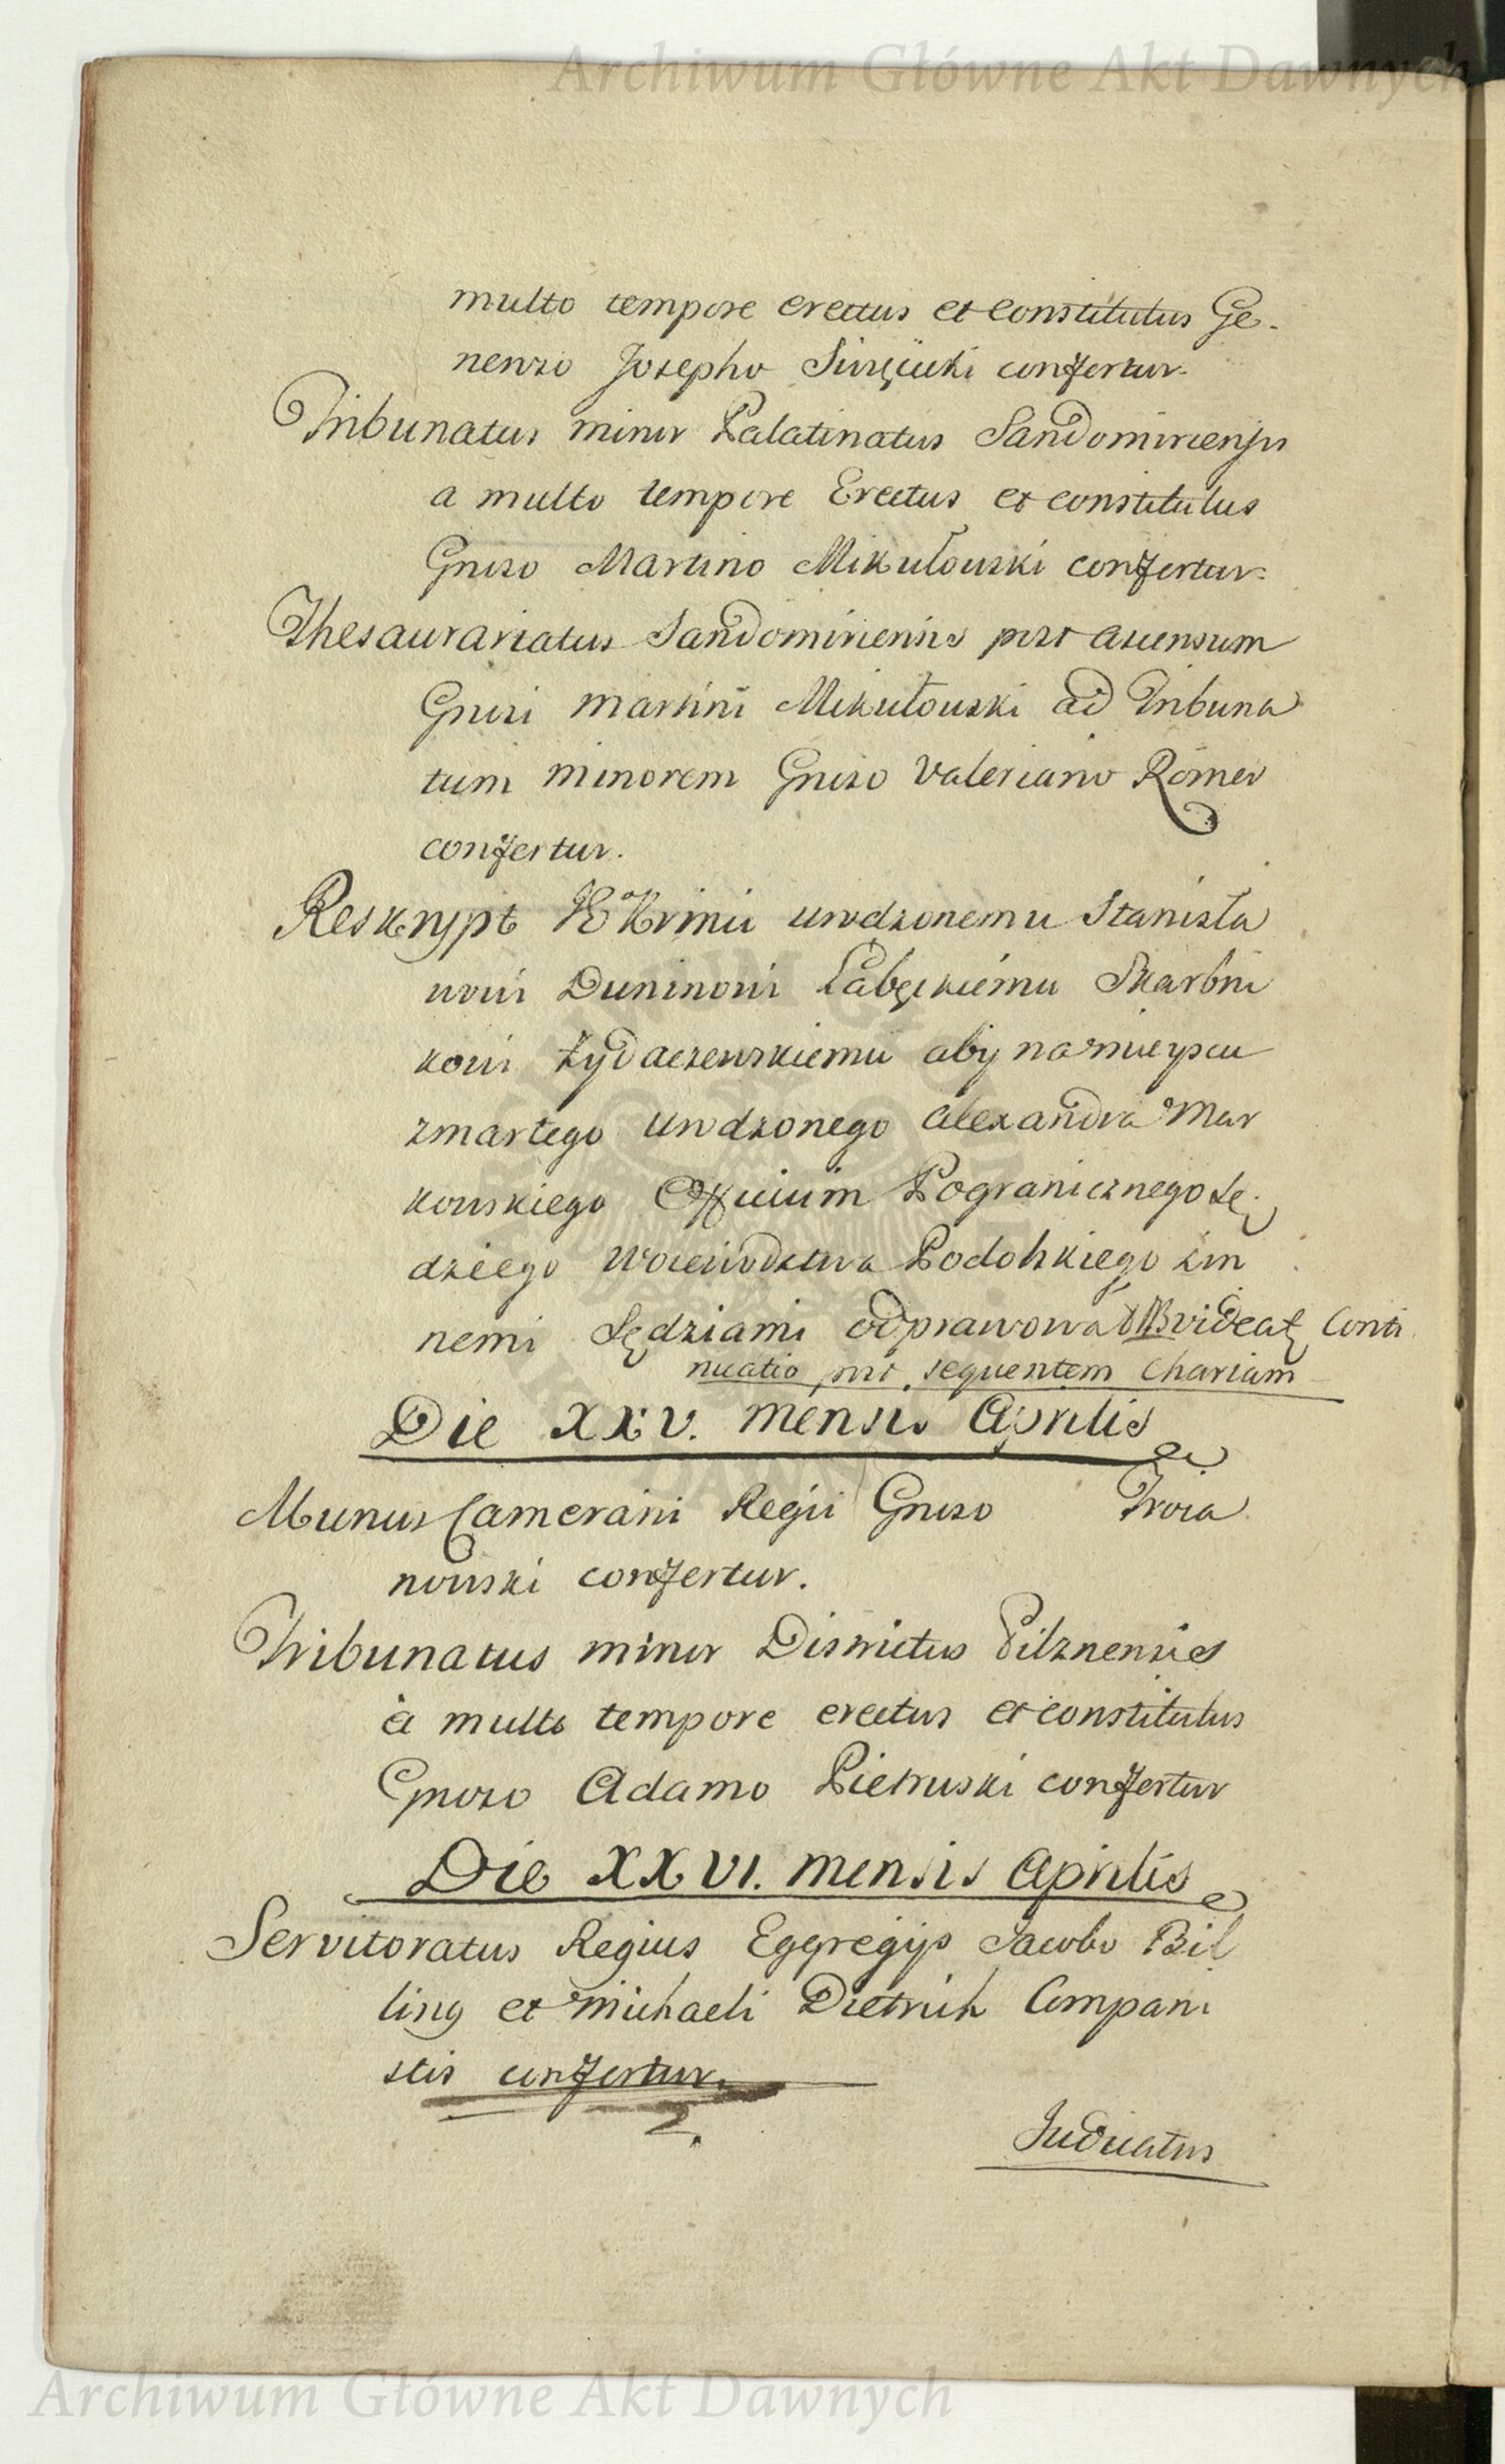 Archiwum Główne Akt Dawnych
multo tempore erectus et constitutus Ge-
neroso Josepho confertur.
Tribunatus minor Palatinatus Sandomiriensis
a multo tempore Erectus et constitutus
Gnoso Martino Mikułowski confertur.
Thesaurariatus Sandomiriensis post ascensum
Gnosi Martini Mikułowski ad Tribuna
tum minorem Gnoso Valeriano Römer
confertur.
Reskrypt JEKrmci urodzonemu Stanisła
wowi Duninowi Łabęckiemu Skarbni
kowi Żydaczewskiemu aby na mieyscu
zmarłego urodzonego Alexandra Mar
kowskiego Officium Pogranicznego Sę
dziego Woiewodztwa Podolskiego z in
nemi Sędziami odprawował NB videat Conti
nuatio post sequentem Chartam
Die XXV. mensis Aprilis
Munus Camerarii Regii Gnoso Troia
nowski confertur.
Tribunatus minor Districtus Pilznensis
à multo tempore erectus et constitutus
Gnoso Adamo Pietruski confertur
Die XXVI. mensis Aprilis
Servitoratus Regius Eggregijs Jacobo Bil
ling et Michaeli Dietrich Compani
stis confertur.
Judicatus
Archiwum Główne Akt Dawnych